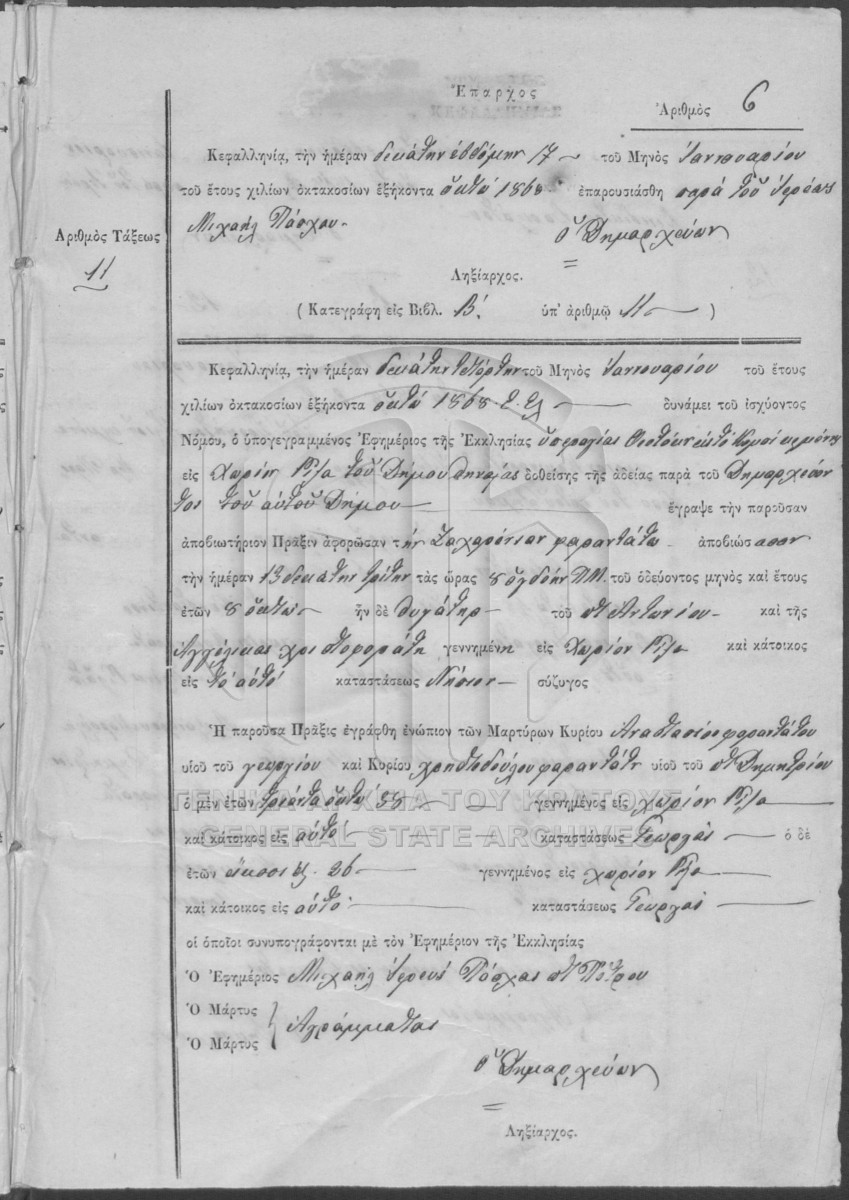 Ἔπαρχος
Ἀριθμὸς 6
Κεφαλληνίᾳ, τὴν ἡμέραν δεκάτην ἑβδόμην 17 τοῦ Μηνὸς Ἰαννουαρίου
τοῦ ἔτους χιλίων ὀκτακοσίων ἑξήκοντα ὀκτώ 1868 ἐπαρουσιάσθη παρὰ τοῦ ἱερέως
Μιχαήλ Πάσχου
ὁ Δημαρχεύων
Ἀριθμὸς Τάξεως
11
Ληξίαρχος.
( Κατεγράφη εἰς Βιβλ. Β! ὑπ' ἀριθμῷ 11 )
Κεφαλληνίᾳ, τὴν ἡμέραν δεκάτην τετάρτην τοῦ Μηνὸς Ἰαννουαρίου τοῦ ἔτους
χιλίων ὀκτακοσίων ἑξήκοντα ὀκτώ 1868 Ε. Ελ δυνάμει τοῦ ἰσχύοντος
Νόμου, ὁ ὑπογεγραμμένος Ἐφημέριος τῆς Ἐκκλησίας ὑπεραγίας Θεοτόκου
εἰς Χωρίον Ρίζα τοῦ Δήμου Πηναίας δοθείσης τῆς ἀδείας παρὰ τοῦ Δημαρχεύον
τος τοῦ αὐτοῦ Δήμου ἔγραψε τὴν παροῦσαν
ἀποβιωτήριον Πρᾶξιν ἀφορῶσαν τὴν Ζαχαρένιαν φαραντάτω ἀποβιώσασαν
τὴν ἡμέραν 13 δεκάτην τρίτην τὰς ὥρας 8 ὀγδόην Π.Μ. τοῦ ὁδεύοντος μηνὸς καὶ ἔτους
ἐτῶν 8 ὀκτώ ἦν δὲ θυγάτηρ τοῦ Ἀντωνίου καὶ τῆς
Ἀγγέλικας χριστοφοράτη γεννημένη εἰς Χωρίον Ρίζα καὶ κάτοικος
εἰς τὸ αὐτό καταστάσεως Νήπιον σύζυγος
Ἡ παροῦσα Πρᾶξις ἐγράφθη ἐνώπιον τῶν Μαρτύρων Κυρίου Ἀναστασίου φαραντάτου
υἱοῦ τοῦ γεωργίου καὶ Κυρίου χρηστοδούλου φαραντάτη υἱοῦ τοῦ Δημητρίου
ὁ μὲν ἐτῶν τριάντα ὀκτώ 38 γεννημένος εἰς χωρίον Ρίζα
καὶ κάτοικος εἰς αὐτό καταστάσεως Γεωργός ὁ δὲ
ἐτῶν εἴκοσι ἕξ 26 γεννημένος εἰς χωρίον Ρίζα
καὶ κάτοικος εἰς αὐτό καταστάσεως Γεωργός
οἱ ὁποῖοι συνυπογράφονται μὲ τὸν Ἐφημέριον τῆς Ἐκκλησίας
Ὁ Ἐφημέριος Μιχαήλ Ἱερεύς Πάσχας Πέτρου
Ὁ Μάρτυς
Ὁ Μάρτυς
Ἀγράμματοι
ὁ Δημαρχεύων
Ληξίαρχος.
ΓΕΝΙΚΑ ΑΡΧΕΙΑ ΤΟΥ ΚΡΑΤΟΥΣ
GENERAL STATE ARCHIVES